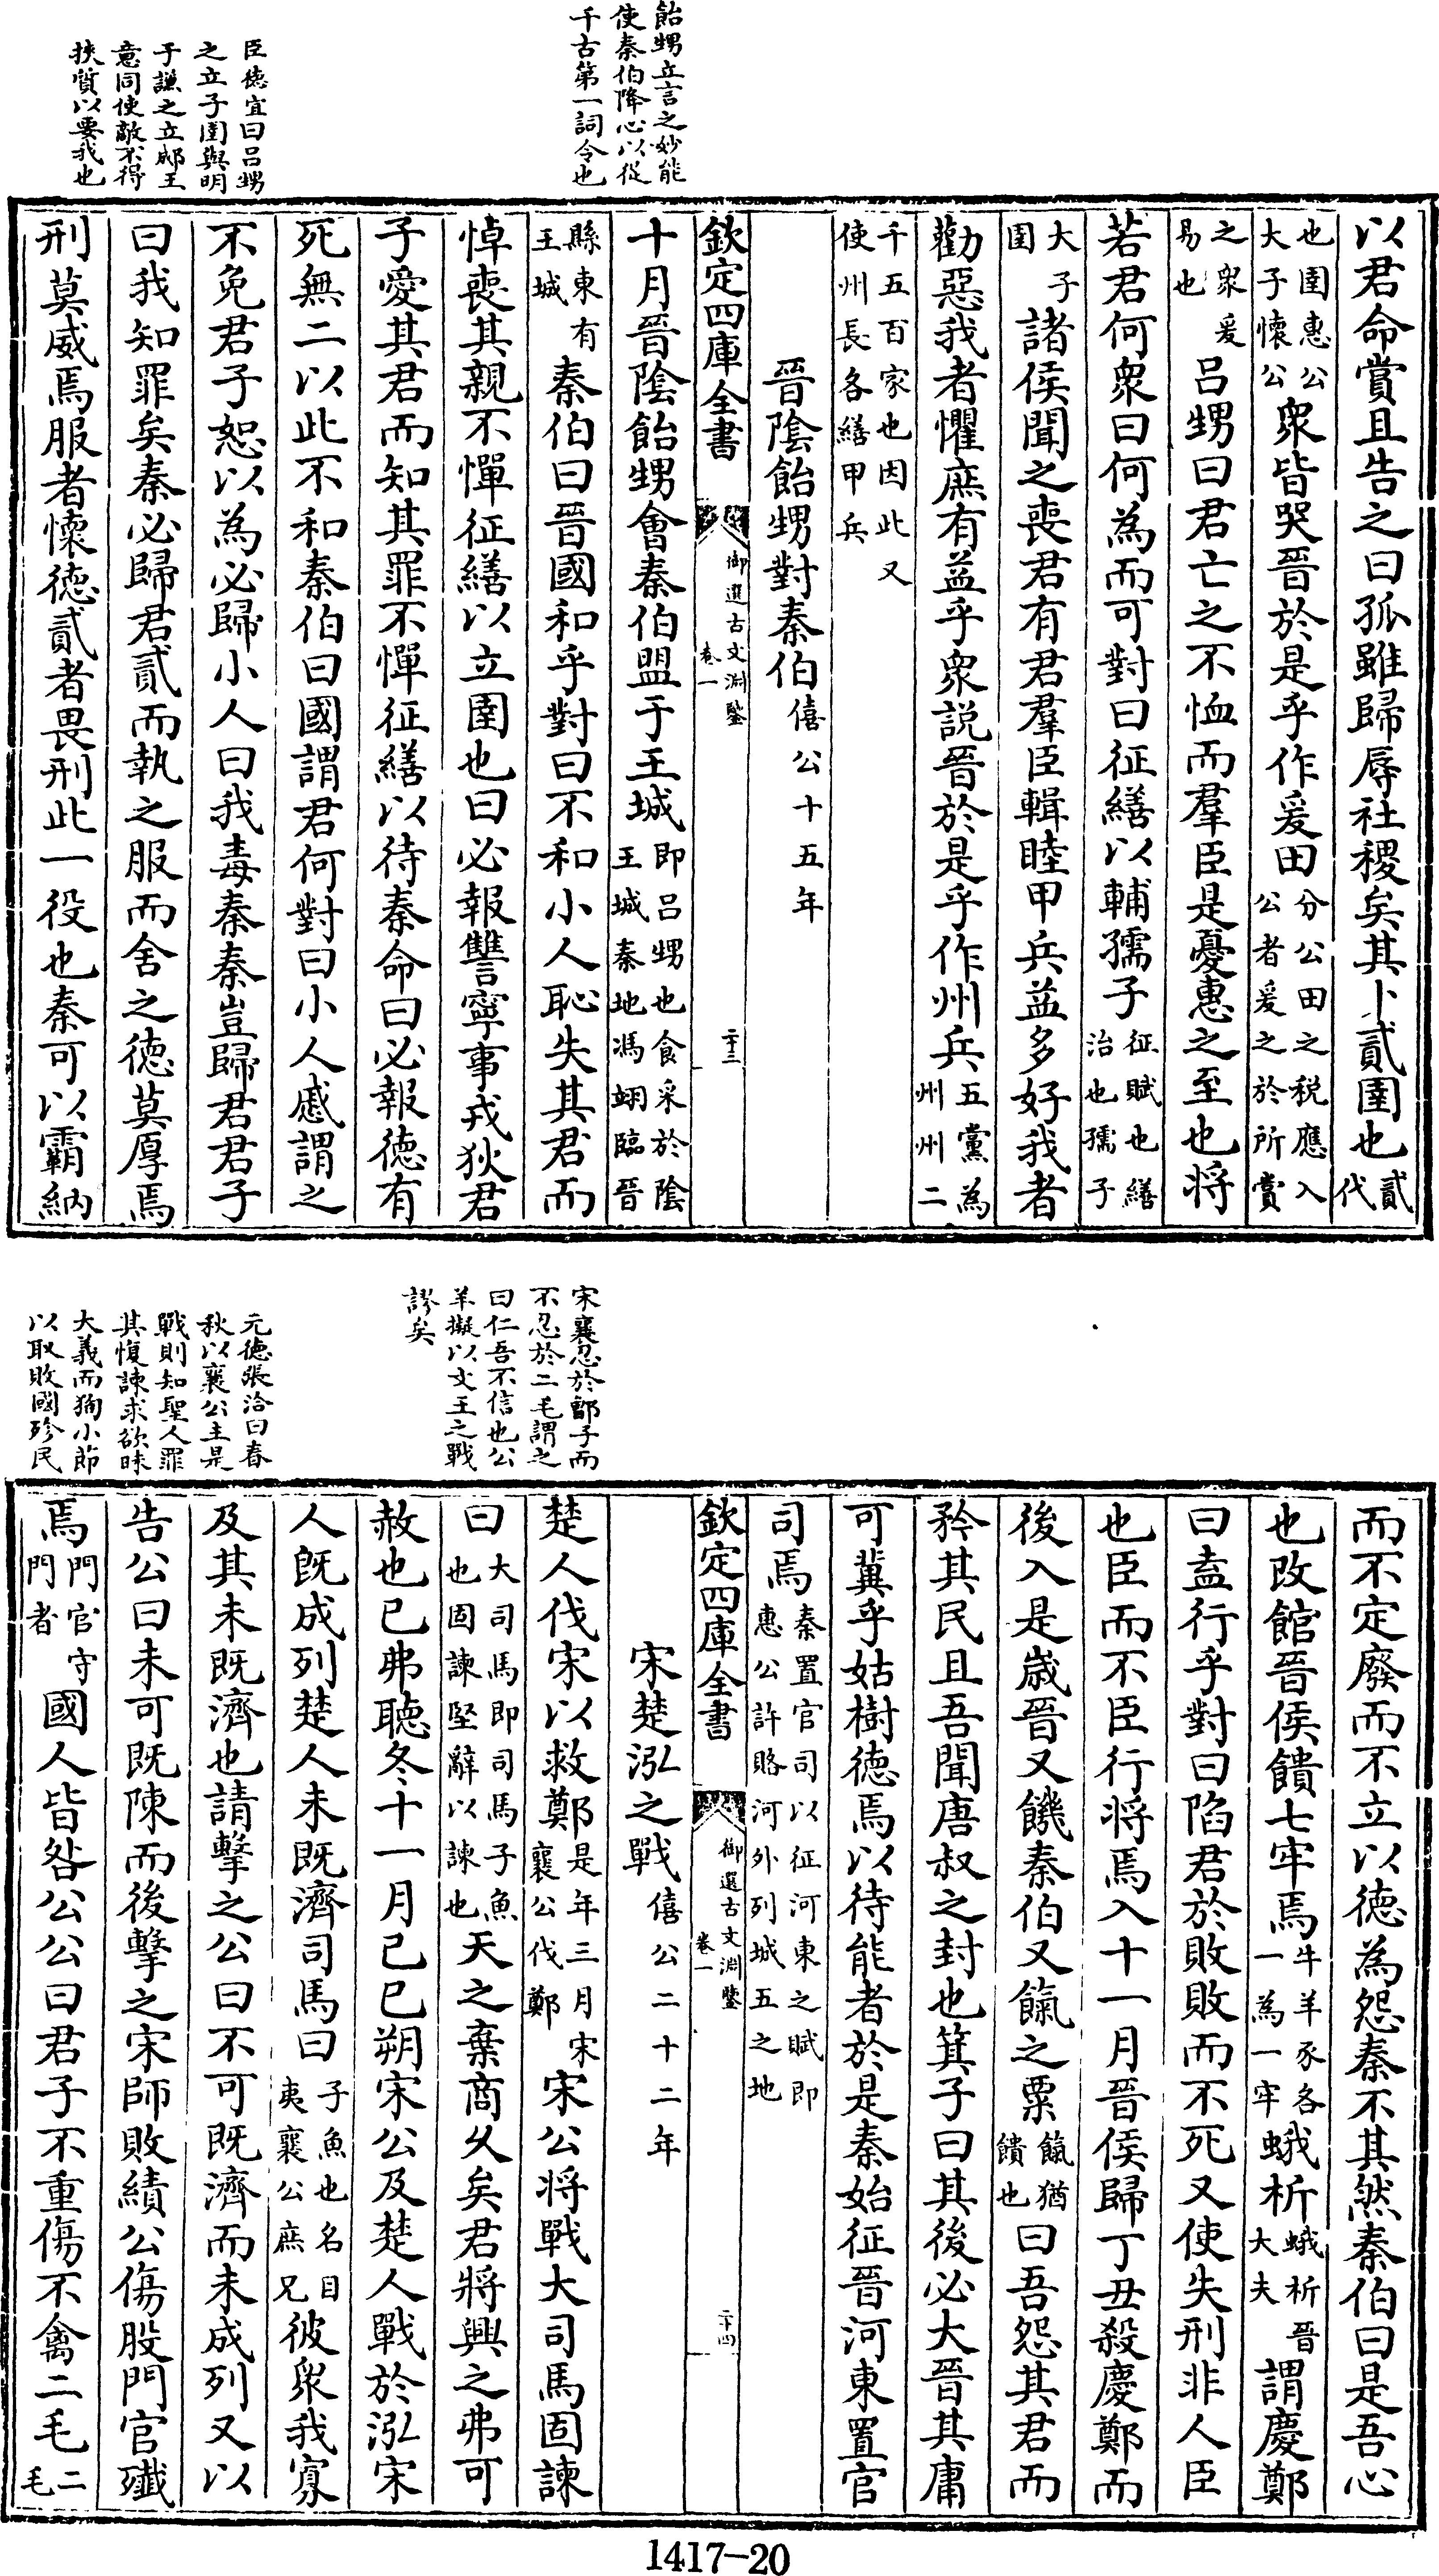 飴甥立言之妙能
使秦伯降心以從
千古第一詞令也
臣徳宜曰呂甥
之立子圉與明
于謙之立郕王
意同使敵不得
挾質以要我也
以君命賞且告之曰孤雖歸辱社稷矣其卜貳圉也貳代
也圉惠公大子懷公衆皆哭晉於是乎作爰田分公田之税應入公者爰之於所賞
之衆爰易也呂甥曰君亡之不恤而羣臣是憂惠之至也将
若君何衆曰何為而可對曰征繕以輔孺子征賦也繕治也孺子
大子圉諸侯聞之喪君有君羣臣輯睦甲兵益多好我者
勸惡我者懼庶有益乎衆説晉於是乎作州兵五黨為州州二
千五百家也因此又使州長各繕甲兵
晉陰飴甥對秦伯僖公十五年
欽定四庫全書
御選古文淵鑒
卷一
二十三
十月晉陰飴甥會秦伯盟于王城即呂甥也食采於陰王城秦地馮翊臨晉
縣東有王城秦伯曰晉國和乎對曰不和小人恥失其君而
悼喪其親不憚征繕以立圉也曰必報讐寧事戎狄君
子愛其君而知其罪不憚征繕以待秦命曰必報徳有
死無二以此不和秦伯曰國謂君何對曰小人慼謂之
不免君子恕以為必歸小人曰我毒秦秦豈歸君君子
曰我知罪矣秦必歸君貳而執之服而舍之徳莫厚焉
刑莫威焉服者懷徳貳者畏刑此一役也秦可以霸納
宋襄忍於鄫子而
不忍於二毛謂之
曰仁吾不信也公
羊擬以文王之戰
謬矣
元徳張洽曰春
秋以襄公主是
戰則知聖人罪
其愎諫求欲昧
大義而狥小節
以取敗國殄民
而不定廢而不立以徳為怨秦不其然秦伯曰是吾心
也改館晉侯饋七牢焉牛羊豕各一為一牢蛾析蛾析晉大夫謂慶鄭
曰盍行乎對曰陷君於敗敗而不死又使失刑非人臣
也臣而不臣行将焉入十一月晉侯歸丁丑殺慶鄭而
後入是歲晉又饑秦伯又餼之粟餼猶饋也曰吾怨其君而
矜其民且吾聞唐叔之封也箕子曰其後必大晉其庸
可冀乎姑樹徳焉以待能者於是秦始征晉河東置官
司焉秦置官司以征河東之賦即惠公許賂河外列城五之地
欽定四庫全書
御選古文淵鑒
卷一
二十四
宋楚泓之戰僖公二十二年
楚人伐宋以救鄭是年三月宋襄公伐鄭宋公将戰大司馬固諫
曰大司馬即司馬子魚也固諫堅辭以諫也天之棄商久矣君將興之弗可
赦也已弗聽冬十一月己巳朔宋公及楚人戰於泓宋
人旣成列楚人未既濟司馬曰子魚也名目夷襄公庶兄彼衆我寡
及其未既濟也請擊之公曰不可既濟而未成列又以
告公曰未可既陳而後擊之宋師敗績公傷股門官殲
焉門官守門者國人皆咎公公曰君子不重傷不禽二毛二毛
1417-20